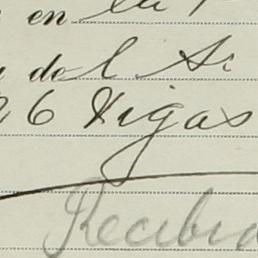 en la
de l Sr
26 Vigas
Recibid